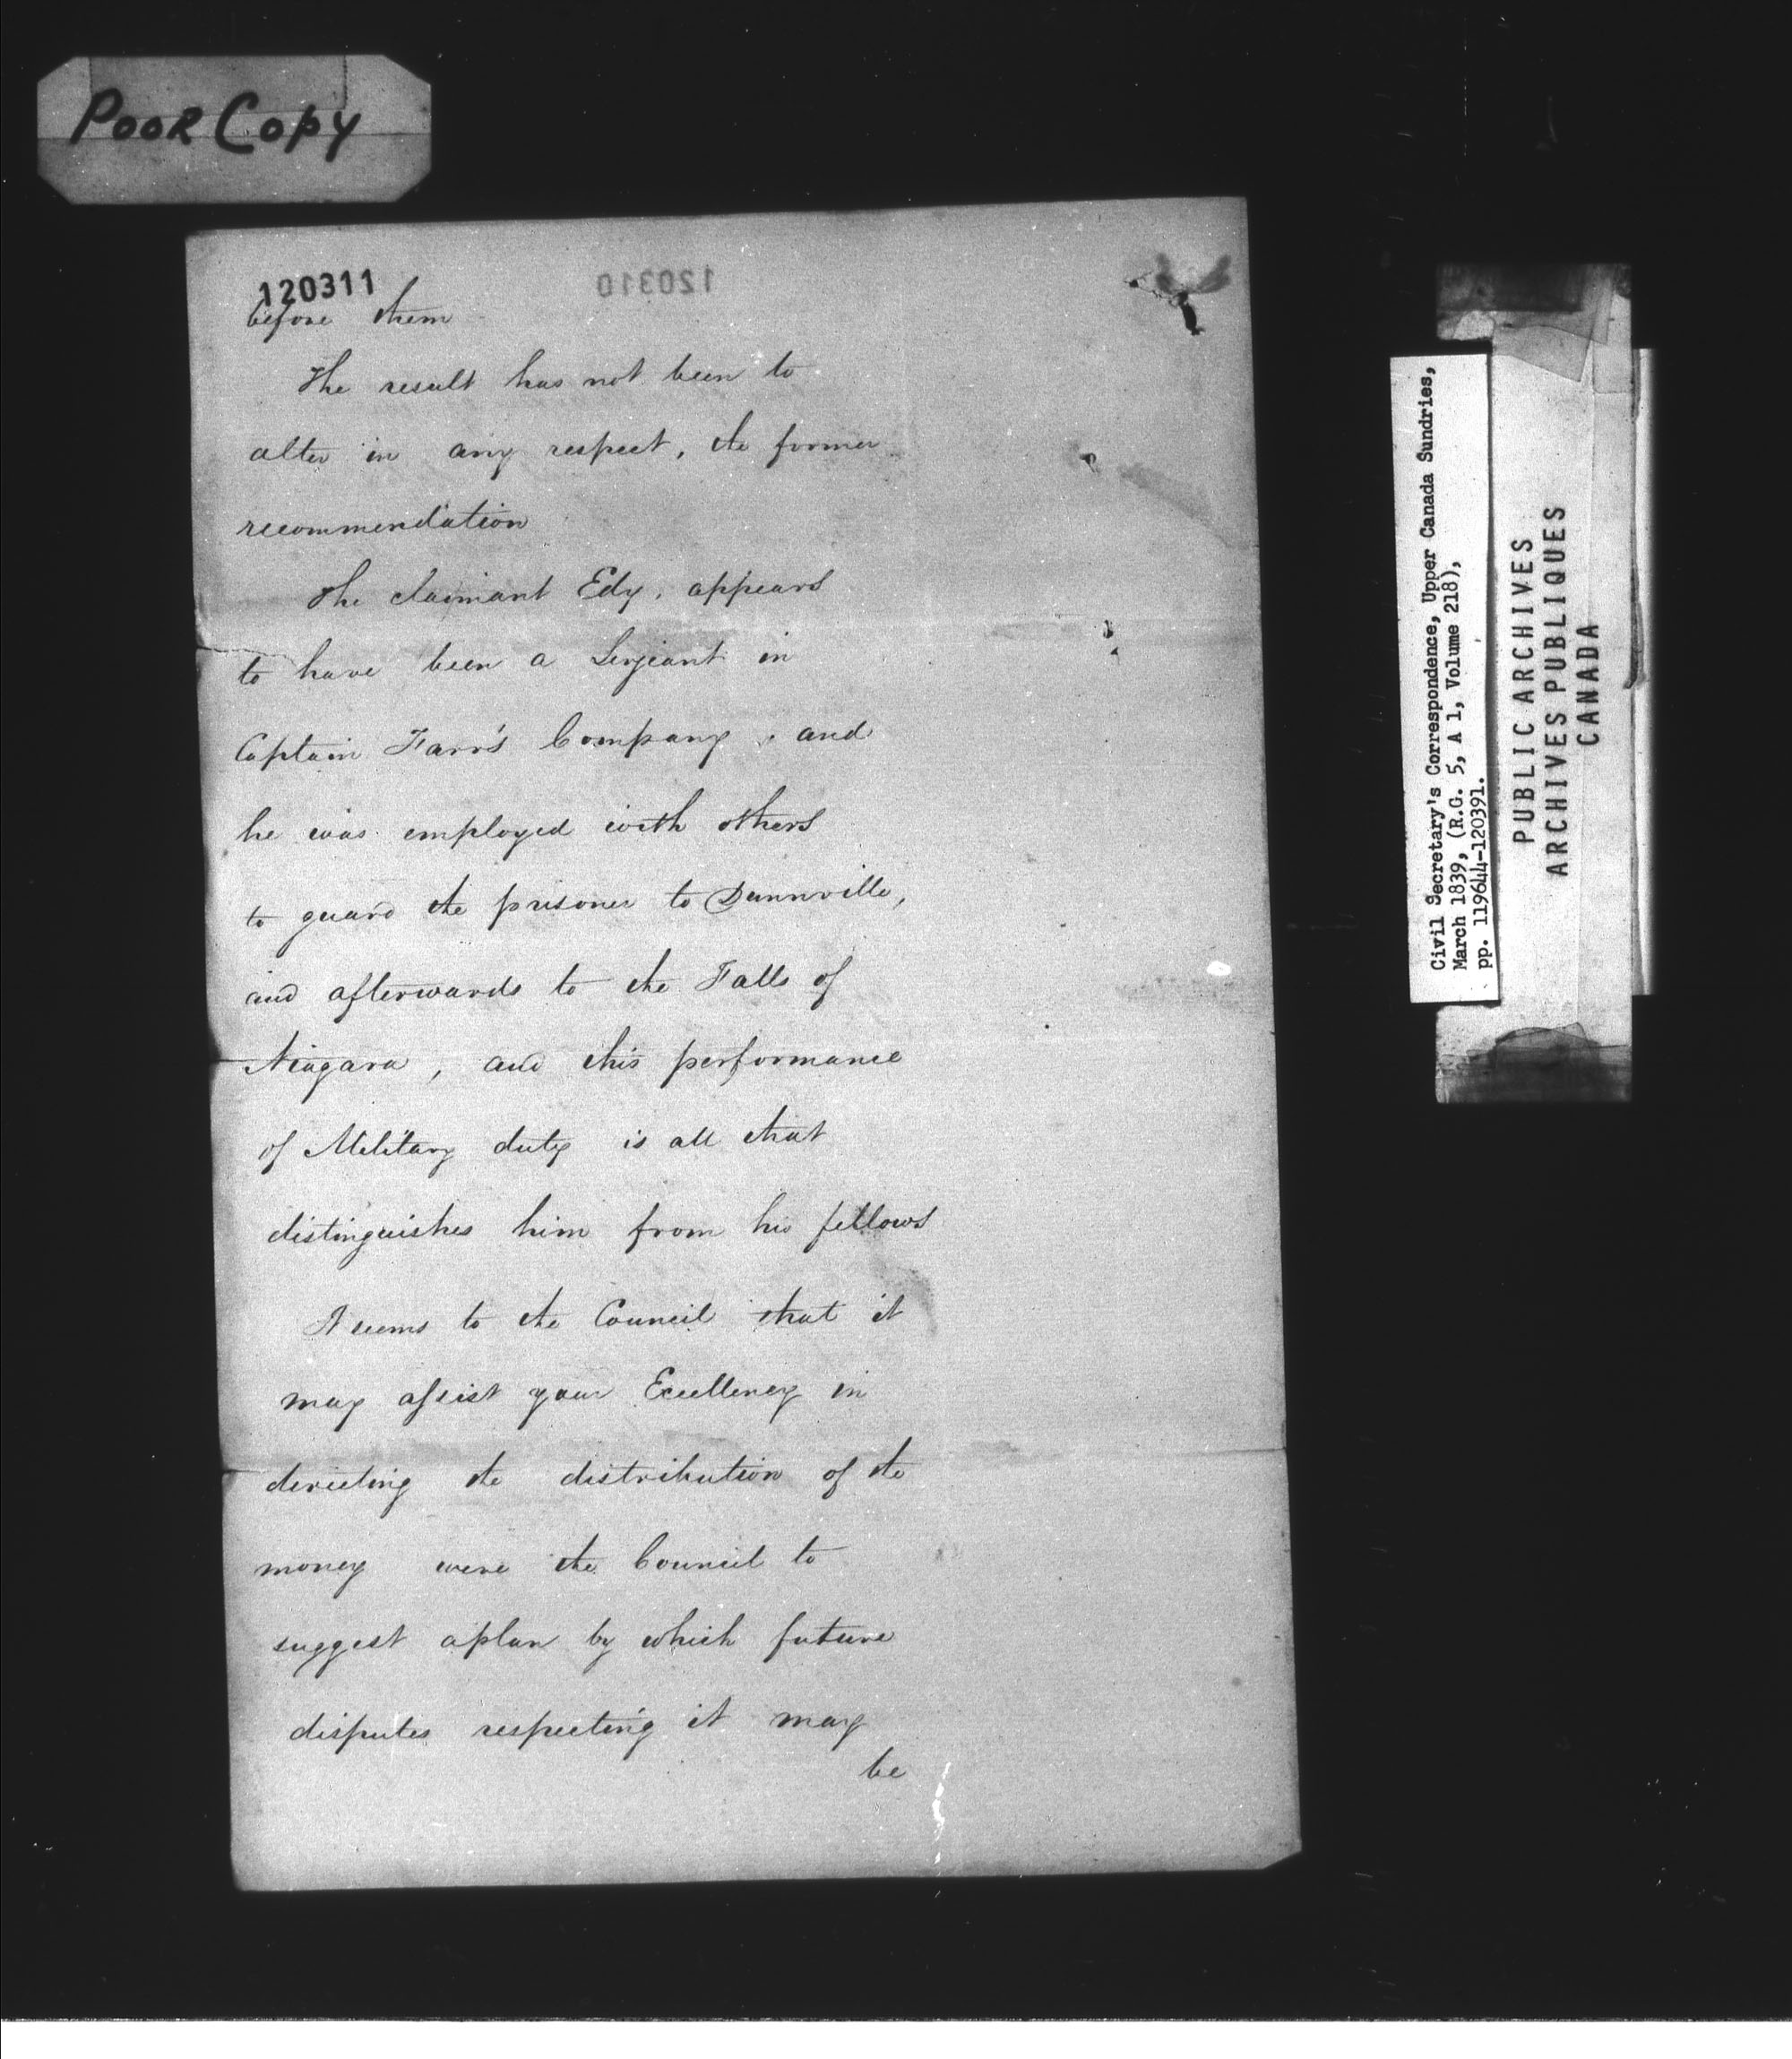 Poor Copy
120311
120310
before them
The result has not been to
alter in any respect, the former
recommendation
The claimant Edy, appears
to have been a Serjeant in
Captain Farr's Company, and
he was employed with others
to guard the prisoner to Dunnville,
and afterwards to the Falls of
Niagara, and this performance
of Military duty is all that
distinguishes him from his fellows
It seems to the Council that it
may assist your Excellency in
directing the distribution of the
money were the Council to
suggest a plan by which future
disputes respecting it may
be
Civil Secretary's Correspondence, Upper Canada Sundries,
March 1839, (R.G. 5, A 1, Volume 218),
pp. 119644-120391.
PUBLIC ARCHIVES
ARCHIVES PUBLIQUES
CANADA